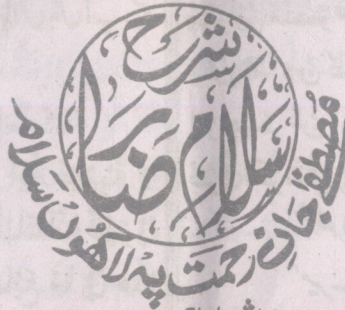 شرح
سلام رضا
مصطفےٰ جانِ رحمت پہ لاکھوں سلام